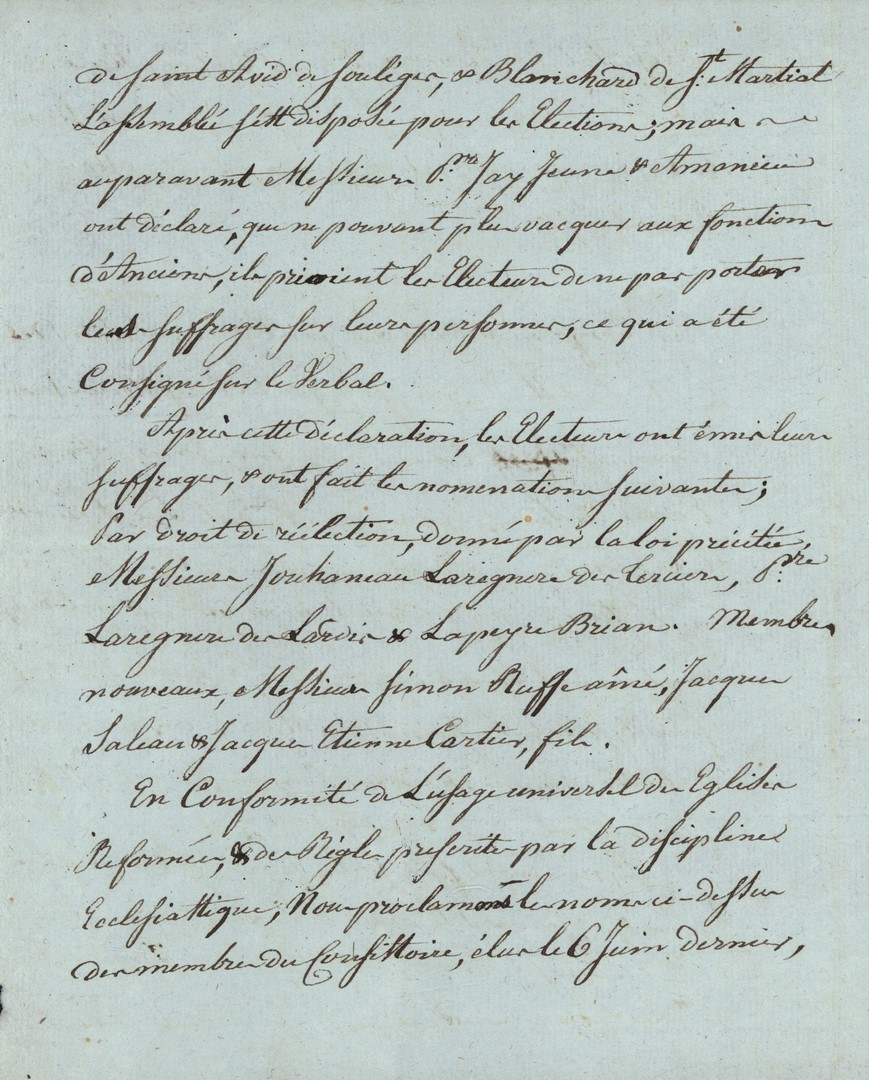 de saint Avid de souléges, & Blanchard de St. Martial
L'assemblé s'ést disposée pour les Elections; mais
auparavant Messieurs Jay Jeune &
ont déclaré, que ne pouvant plus vacquer aux fonctions
d'Anciens, ils prioient les Electeurs de ne pas porter
leurs suffrages sur leurs personnes, ce qui a été
Consigné sur le Verbal.
Après cette déclaration, les Electeurs ont émis leurs
suffrages, & ont fait les nomenations suivantes;
Par droit de réélection, donné par la loi précitée,
Messieurs Jouhaneau Laregnere des Terciers, Pre.
Laregnere de Lardis & Lapeyre Brian. Membres
nouveaux, Messieurs Simon Ruffe aîné, Jacques
Saleau & Jacques Etienne Cartier, fils.
En Conformité de L'usage universel des Eglises
Reformées, & des Régles prescrites par la discipline
Ecclesiastique, Nous proclamons les noms ci-dessus
des membres du Consistoire, élus le 6 Juin dernier,